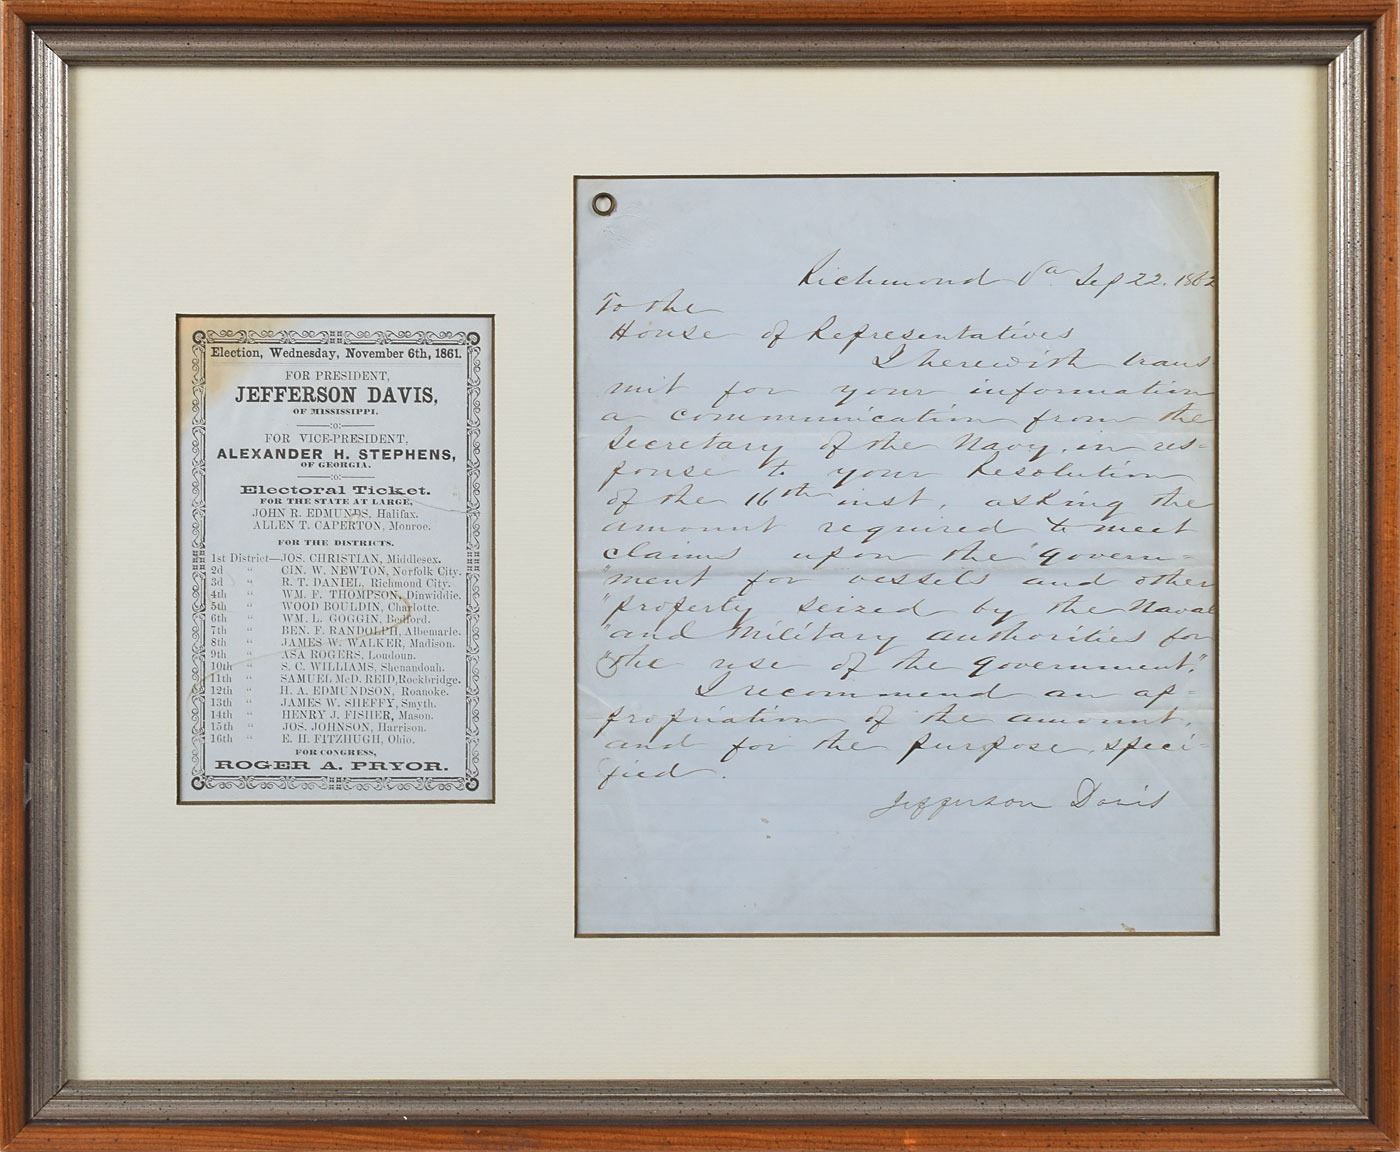 Election, Wednesday, November 6th, 1861.
FOR PRESIDENT,
JEFFERSON DAVIS,
OF MISSISSIPPI.
FOR VICE-PRESIDENT,
ALEXANDER H. STEPHENS,
OF GEORGIA.
Electoral Ticket.
FOR THE STATE AT LARGE,
JOHN R. EDMUNDS, Halifax.
ALLEN T. CAPERTON, Monroe.
FOR THE DISTRICTS.
1st District—JOS. CHRISTIAN, Middlesex.
2d " CIN. W. NEWTON, Norfolk City.
3d " R. T. DANIEL, Richmond City.
4th " WM. F. THOMPSON, Dinwiddie.
5th " WOOD BOULDIN, Charlotte.
6th " WM. L. GOGGIN, Bedford.
7th " BEN. F. RANDOLPH, Albemarle.
8th " JAMES W. WALKER, Madison.
9th " ASA ROGERS, Loudoun.
10th " S. C. WILLIAMS, Shenandoah.
11th " SAMUEL McD. REID, Rockbridge.
12th " H. A. EDMUNDSON, Roanoke.
13th " JAMES W. SHEFFY, Smyth.
14th " HENRY J. FISHER, Mason.
15th " JOS. JOHNSON, Harrison.
16th " E. H. FITZHUGH, Ohio.
FOR CONGRESS,
ROGER A. PRYOR.
Richmond Va. Sep 22. 1862
To the
House of Representatives
I herewith trans
mit for your information
a communication from the
Secretary of the Navy, in res-
ponse to your Resolution
of the 16th inst, asking the
amount required to meet
claims upon the "govern-
"ment for vessels and other
"property seized by the Naval
"and Military authorities for
"the use of the government."
I recommend an ap-
propriation of the amount,
and for the purpose, speci-
fied.
Jefferson Davis